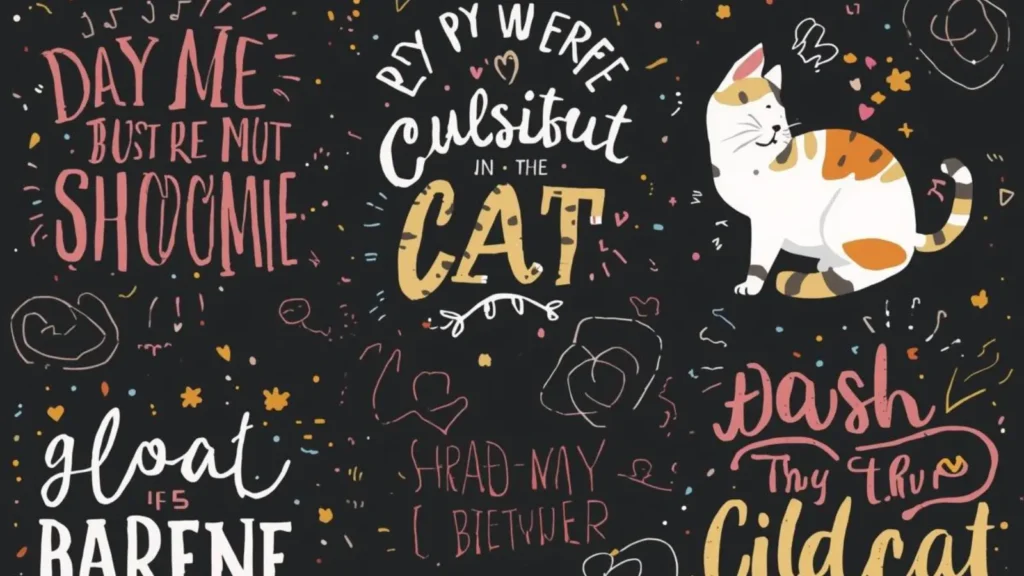 DAY ME
BUST RE MUT
SHOOMIE
PY WERFE
Culsibut
IN • THE
CAT
gloat
IFS
BARENE
HRAD-NIY
BIETWUER
Dash
Thy
Cild cat